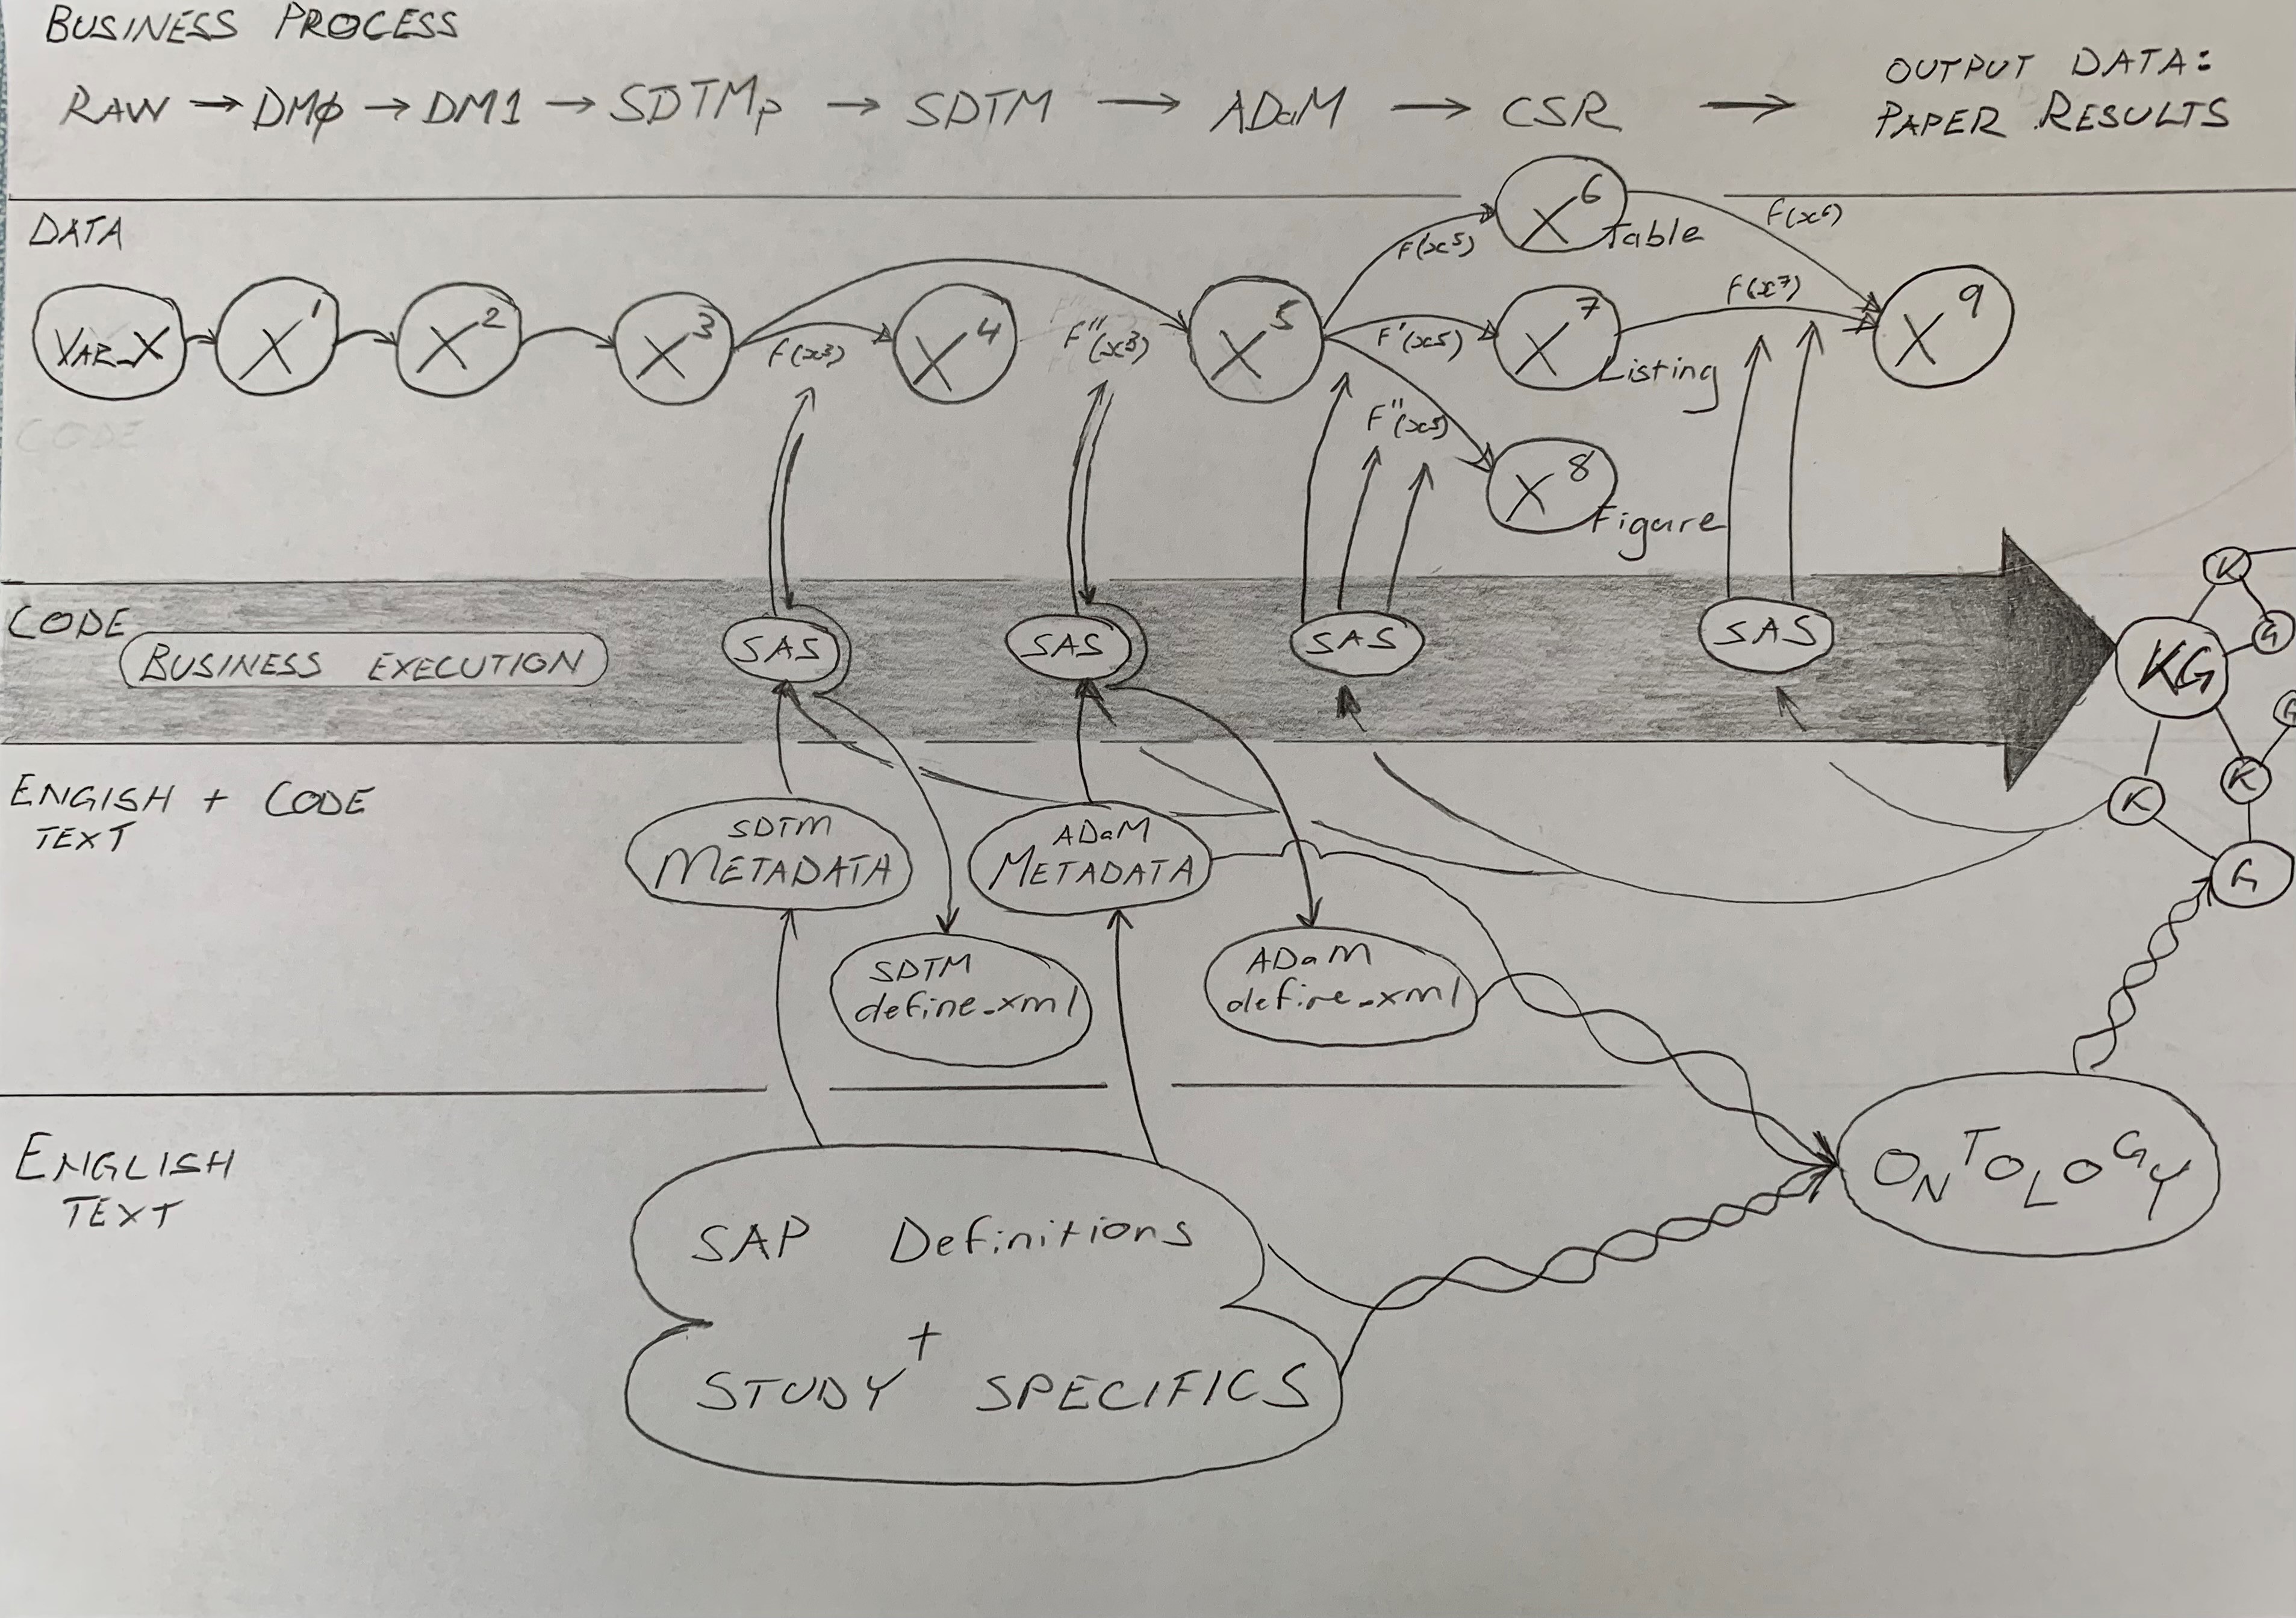 BUSINESS PROCESS
RAW → DMφ → DM1 → SDTMp → SDTM → ADaM → CSR → OUTPUT DATA:
PAPER RESULTS
DATA
VAR_X X¹ X² X³ F(x³) X⁴ F''(x³) X⁵
F(x⁵) X⁶ Table F(x⁶)
F'(x⁵) X⁷ Listing F(x⁷) X⁹
F''(x⁵) X⁸ Figure
CODE
CODE
BUSINESS EXECUTION
SAS SAS SAS SAS
KG
K
G
G
K
K
G
ENGISH + CODE
TEXT
SDTM
METADATA
ADaM
METADATA
SDTM
define.xml
ADaM
define.xml
ENGLISH
TEXT
SAP Definitions
+
STUDY SPECIFICS
ONTOLOGY